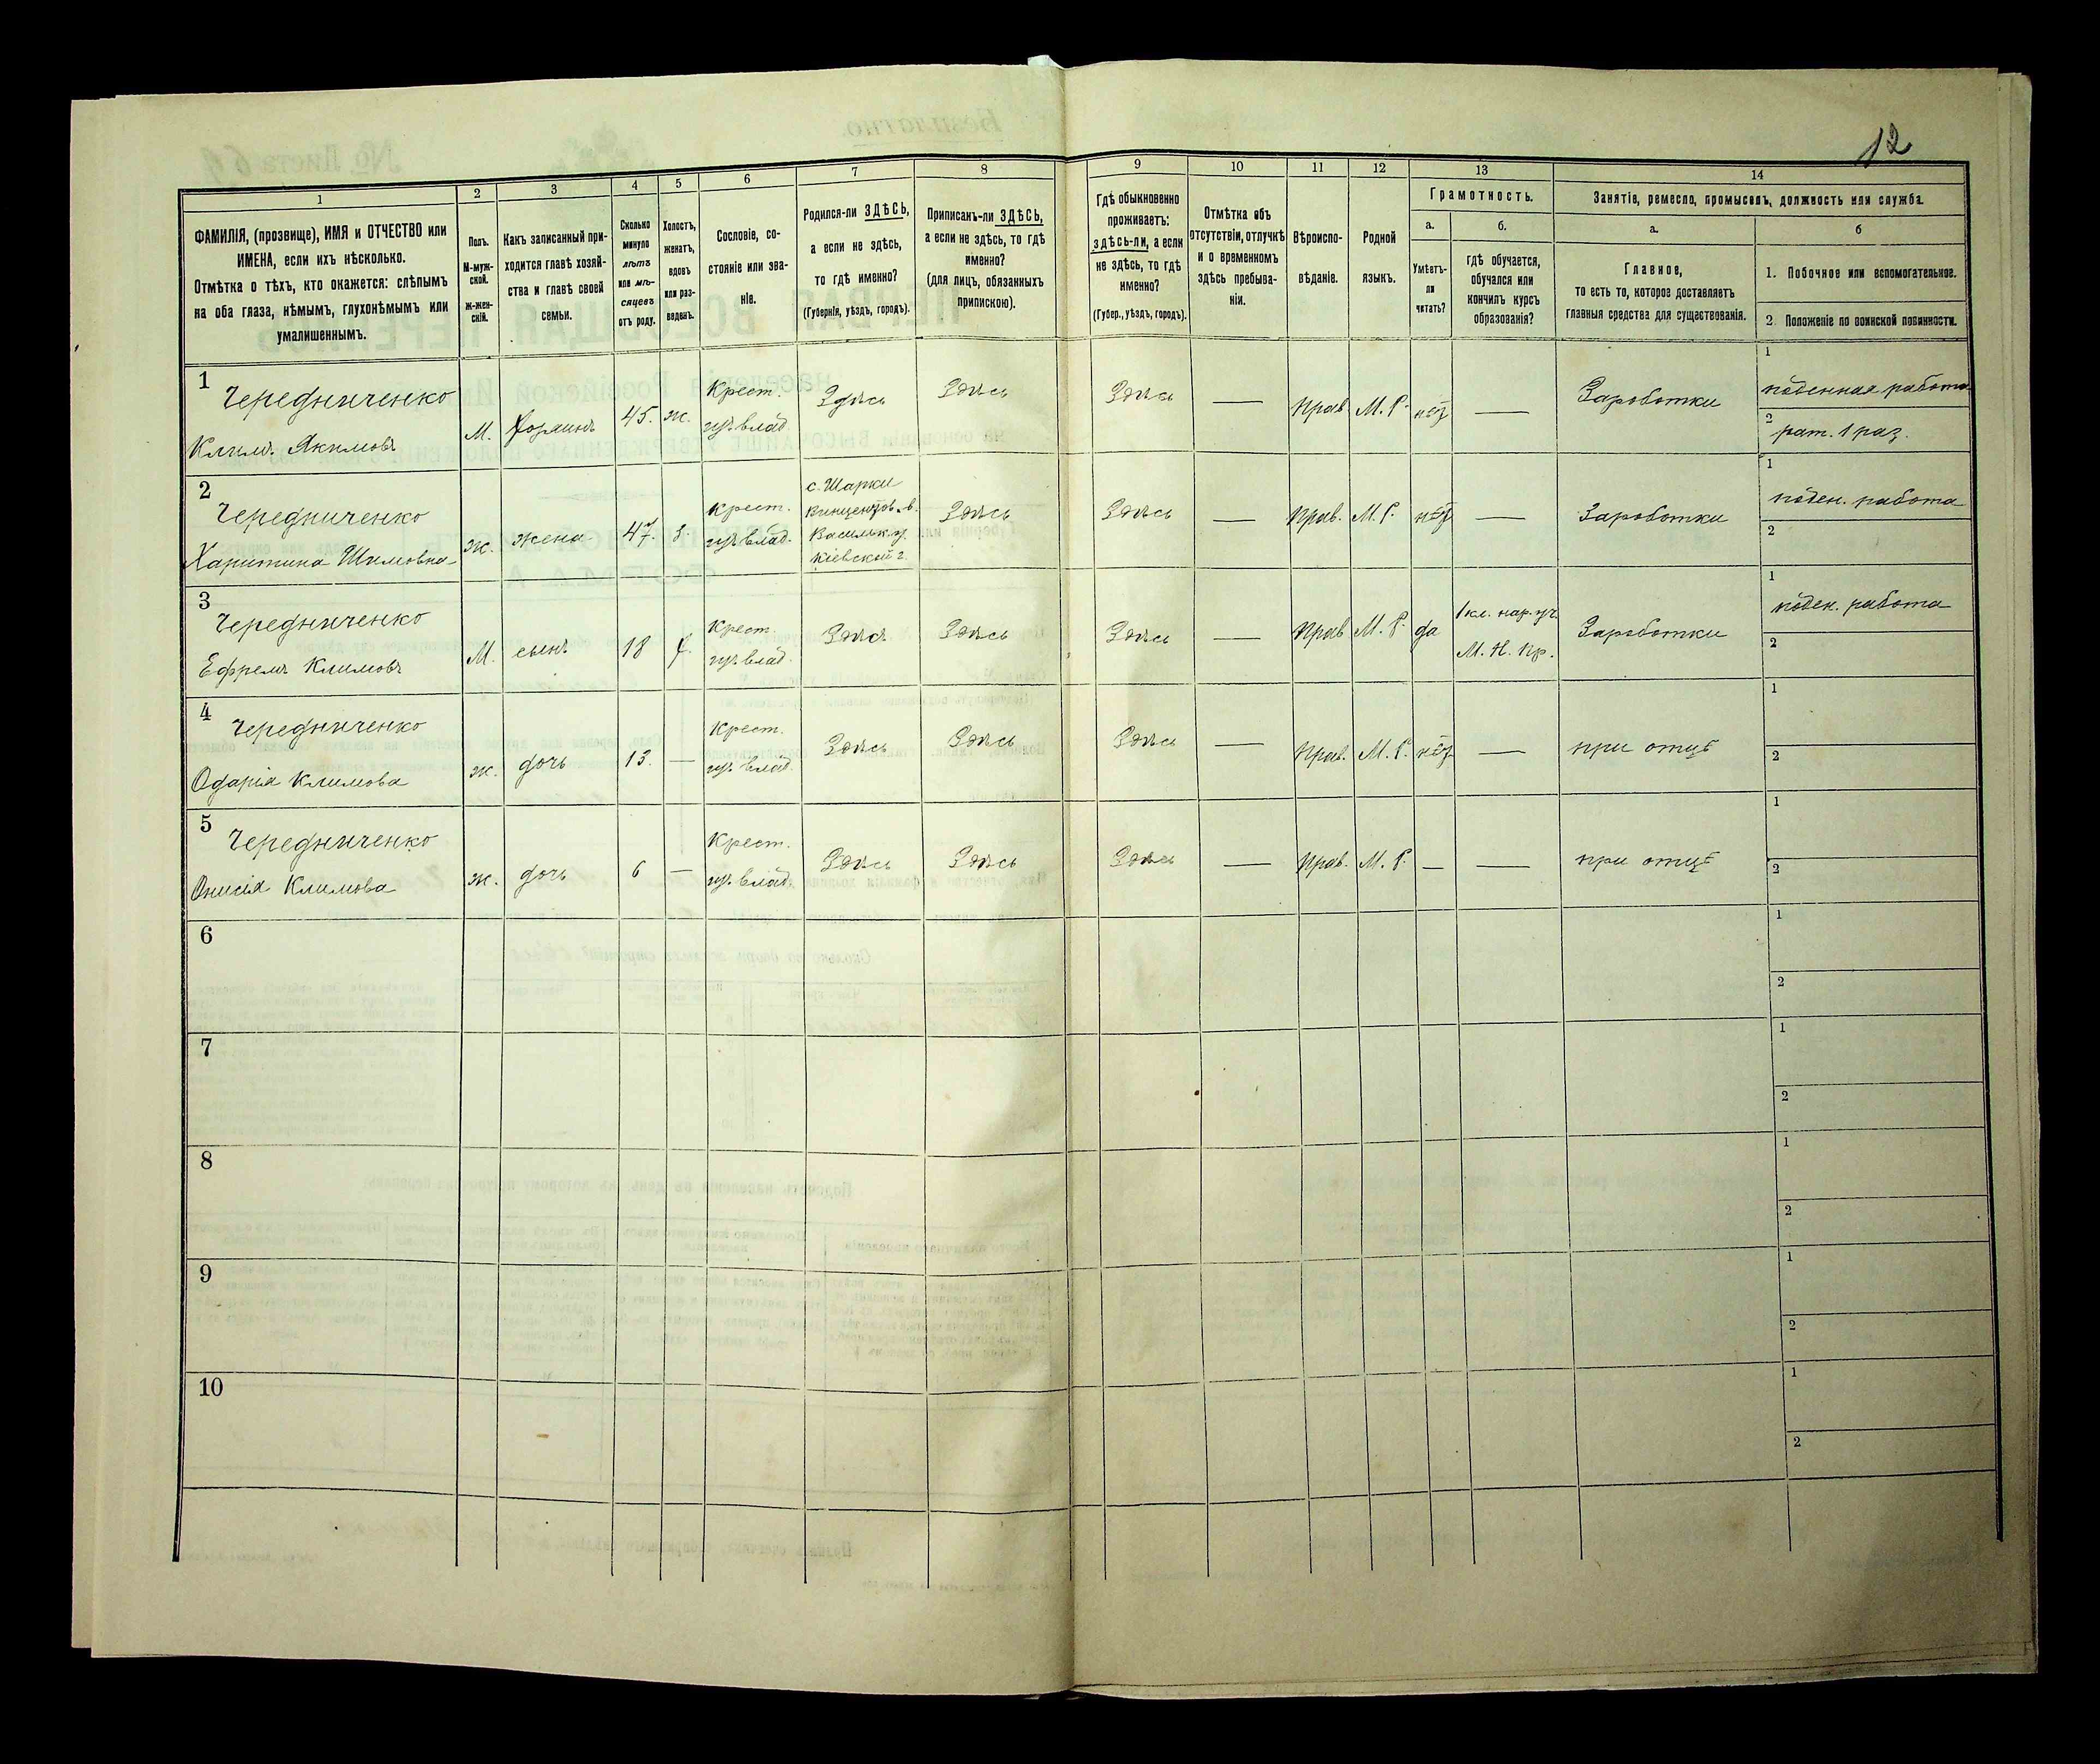 12
1
2
3
4
5
6
7
8
9
10
11
12
13
14
ФАМИЛІЯ, (прозвище), ИМЯ и ОТЧЕСТВО или
ИМЕНА, если ихъ нѣсколько.
Отмѣтка о тѣхъ, кто окажется: слѣпымъ
на оба глаза, нѣмымъ, глухонѣмымъ или
умалишеннымъ.
Полъ.
М-муж-
ской.
Ж-жен-
скій.
Какъ записанный при-
ходится главѣ хозяй-
ства и главѣ своей
семьи.
Сколько
минуло
лѣтъ
или мѣ-
сяцевъ
отъ роду.
Холостъ,
женатъ,
вдовъ
или раз-
веденъ.
Сословіе, со-
стояніе или зва-
ніе.
Родился-ли ЗДѢСЬ,
а если не здѣсь,
то гдѣ именно?
(Губернія, уѣздъ, городъ).
Приписанъ-ли ЗДѢСЬ,
а если не здѣсь, то гдѣ
именно?
(для лицъ, обязанныхъ
припискою).
Гдѣ обыкновенно
проживаетъ:
здѣсь-ли, а если
не здѣсь, то гдѣ
именно?
(Губер., уѣздъ, городъ).
Отмѣтка объ
отсутствіи, отлучкѣ
и о временномъ
здѣсь пребыва-
ніи.
Вѣроиспо-
вѣданіе.
Родной
языкъ.
Грамотность.
а.
Умѣетъ-
ли
читать?
б.
гдѣ обучается,
обучался или
кончилъ курсъ
образованія?
Занятіе, ремесло, промыселъ, должность или служба.
а.
Главное,
то есть то, которое доставляетъ
главныя средства для существованія.
б
1. Побочное или вспомогательное.
2. Положеніе по воинской повинности.
1
Чередниченко
Климъ Якимовъ
М.
45.
ж.
Крест.
влад.
Здѣсь
Здѣсь
Здѣсь
—
Прав.
М. Р.
нѣтъ
—
Заработки
1
поденная работа
2
рат. 1 раз.
2
Чередниченко
Харитина
ж.
жена
47.
з.
Крест.
влад.
с. Шарки
Васильк. у.
Кіевской г.
Здѣсь
Здѣсь
—
Прав.
М. Р.
нѣтъ
—
Заработки
1
поден. работа
2
3
Чередниченко
Ефремъ Климовъ
М.
сынъ
18
х.
Крест.
влад.
Здѣсь
Здѣсь
Здѣсь
—
Прав
М. Р.
да
1 кл. нар. уч.
М. Н. Пр.
Заработки
1
поден. работа
2
4
Чередниченко
Одарія Климова
ж.
дочь
13.
—
Крест.
влад.
Здѣсь
Здѣсь
Здѣсь
—
Прав.
М. Р.
нѣтъ
—
при отцѣ
1
2
5
Чередниченко
Онисія Климова
ж.
дочь
6
—
Крест.
влад.
Здѣсь
Здѣсь
Здѣсь
—
Прав.
М. Р.
—
—
при отцѣ
1
2
6
1
2
7
1
2
8
1
2
9
1
2
10
1
2